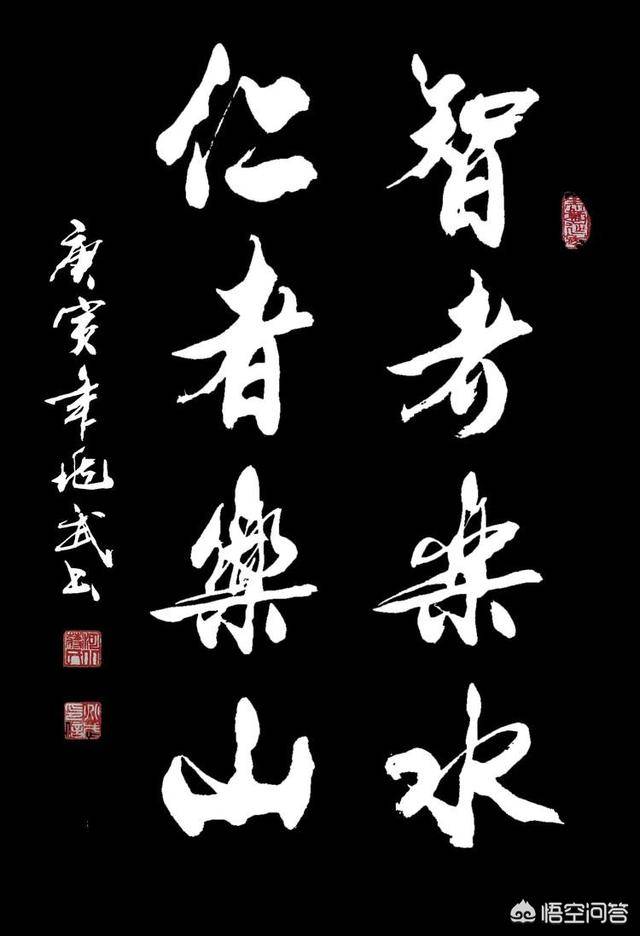 智者樂水
仁者樂山
庚寅年 武书
悟空问答